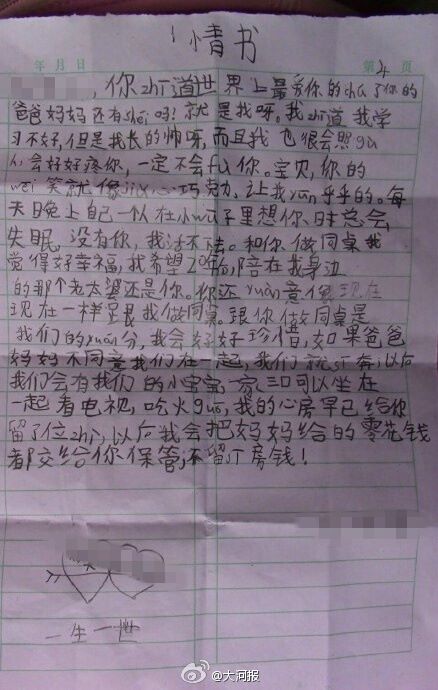 情书
年 月 日 第 4 页
，你zhī道世界上最爱你的chú了你的
爸爸妈妈还有shéi吗？就是我呀。我zhī道我学
习不好，但是我长的帅呀，而且我也很会照gù
会好好疼你，一定不会fù你。宝贝，你的
wēi笑就像jiā心巧克力，让我yūn乎乎的。每
天晚上自己一人在小wū子里想你时总会
失眠，没有你，我活不去。和你做同桌我
觉得好幸福，我希望20年后，陪在我身边
的那个老太婆还是你。你还yuàn意像现在
现在一样是跟我做同桌。跟你做同桌是
我们的yuán分，我会好好珍惜，如果爸爸
妈妈不同意我们在一起，我们就私奔，以后
我们会有我们的小宝宝，一家三口可以坐在
一起看电视，吃火guō，我的心房早已给你
留了位zhì，以后我会把妈妈给的零花钱
都交给你保管，不留1房钱！
一生一世
@大河报